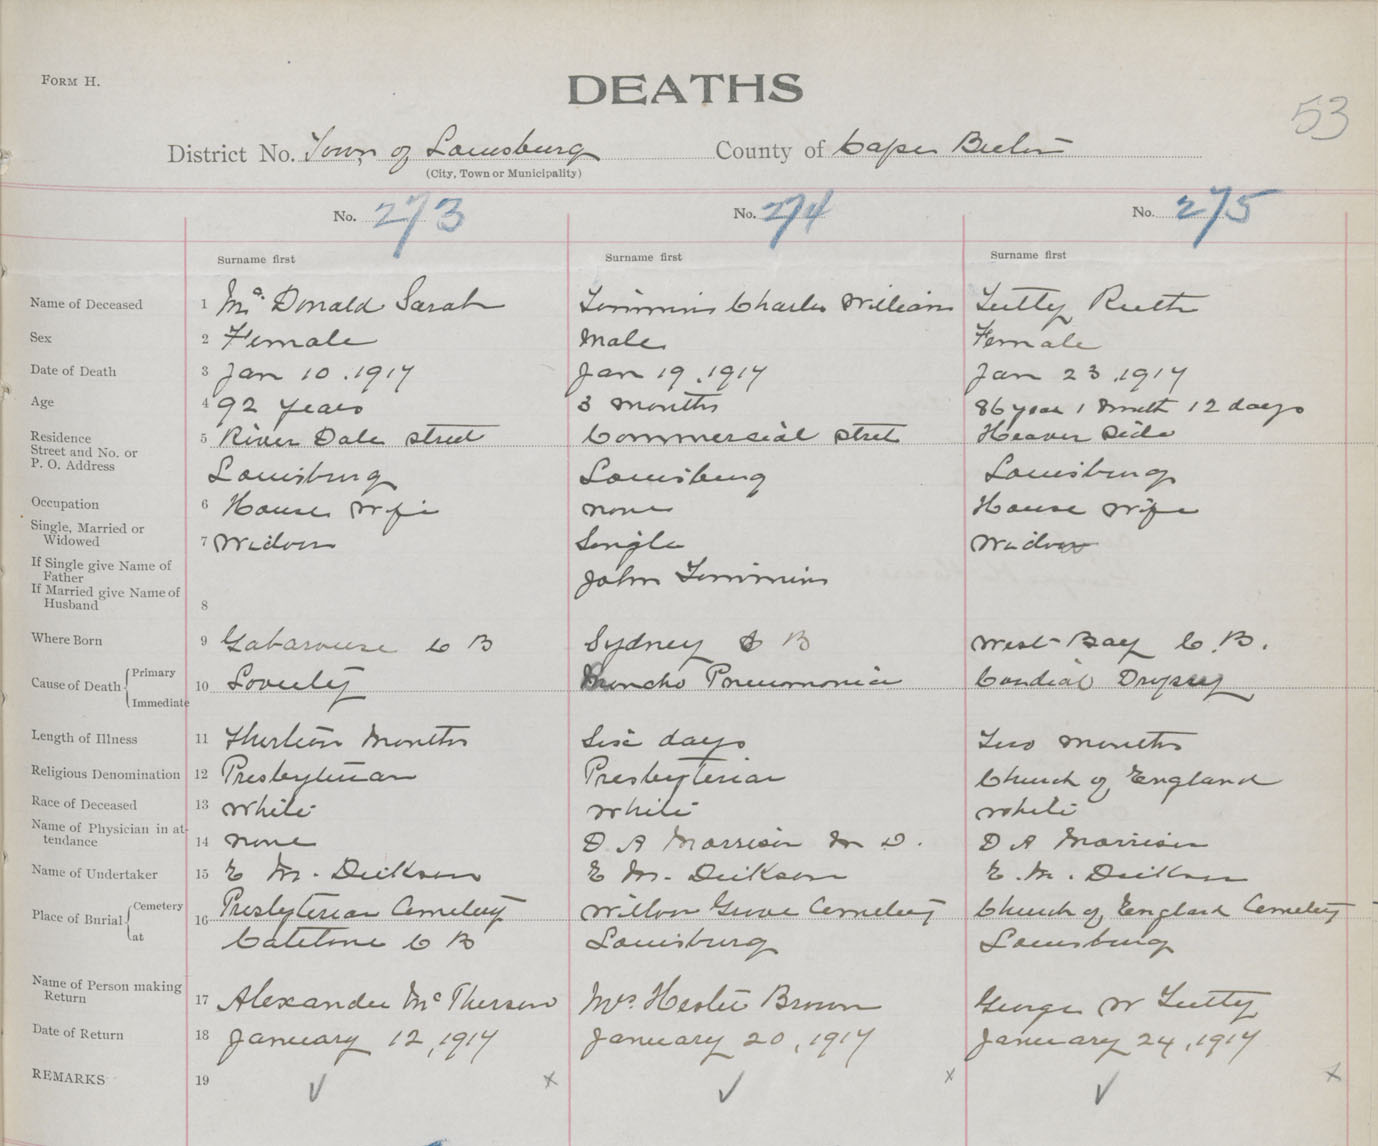 FORM H.
DEATHS
53
District No. Town of Louisburg County of Cape Breton
(City, Town or Municipality)
No. 273 No. 274 No. 275
Surname first Surname first Surname first
Name of Deceased 1 Mc Donald Sarah Timmins Charles William Tutty Ruth
Sex 2 Female Male Female
Date of Death 3 Jan 10. 1917 Jan 19, 1917 Jan 23, 1917
Age 4 92 years 3 months 86 year 1 month 12 days
Residence Street and No. or P. O. Address 5 River Dale street Commercial street Side
Louisburg Louisburg Louisburg
Occupation 6 House Wife none House Wife
Single, Married or Widowed 7 Widow Single Widow
If Single give Name of Father John Timmins
If Married give Name of Husband 8
Where Born 9 Gabarouse C B Sydney C B West Bay C. B.
Cause of Death Primary Immediate 10 Broncho Pneumonia Cardiac Dropsy
Length of Illness 11 Thirteen Months Six days Two months
Religious Denomination 12 Presbyterian Presbyterian Church of England
Race of Deceased 13 White White White
Name of Physician in attendance 14 none D A Morrison M D. D A Morrison
Name of Undertaker 15 E M. Dickson E M. Dickson E. M. Dickson
Place of Burial Cemetery at 16 Presbyterian Cemetery Willow Grove Cemetery Church of England Cemetery
Catelone C B Louisburg Louisburg
Name of Person making Return 17 Alexander McPherson Mrs. Hester Brown George W Tutty
Date of Return 18 January 12, 1917 January 20, 1917 January 24, 1917
REMARKS 19